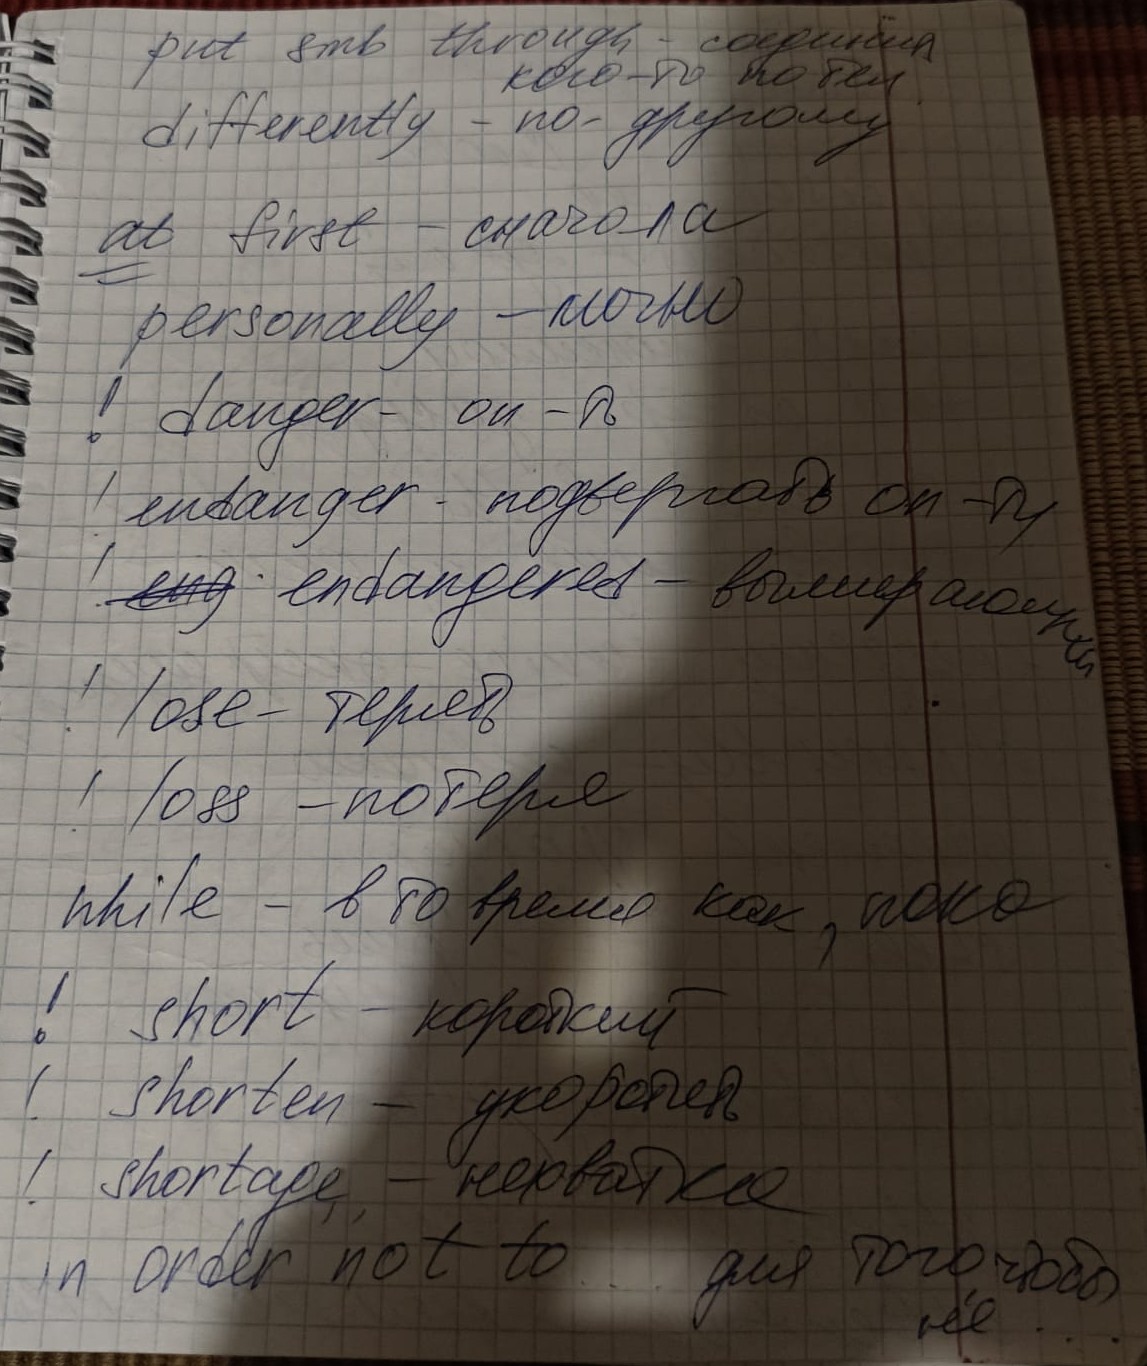 put smb through - соединил
кого-то по тел.
differently - по-другому
at first - сначала
personally - лично
! danger - оп-ть
! endanger - подвергать оп-ти
! endangered - вымирающий
! lose - терять
! loss - потеря
while - в то время как, пока
! short - короткий
! shorten - укоротить
! shortage - нехватка
in order not to ... для того, чтобы
не ...